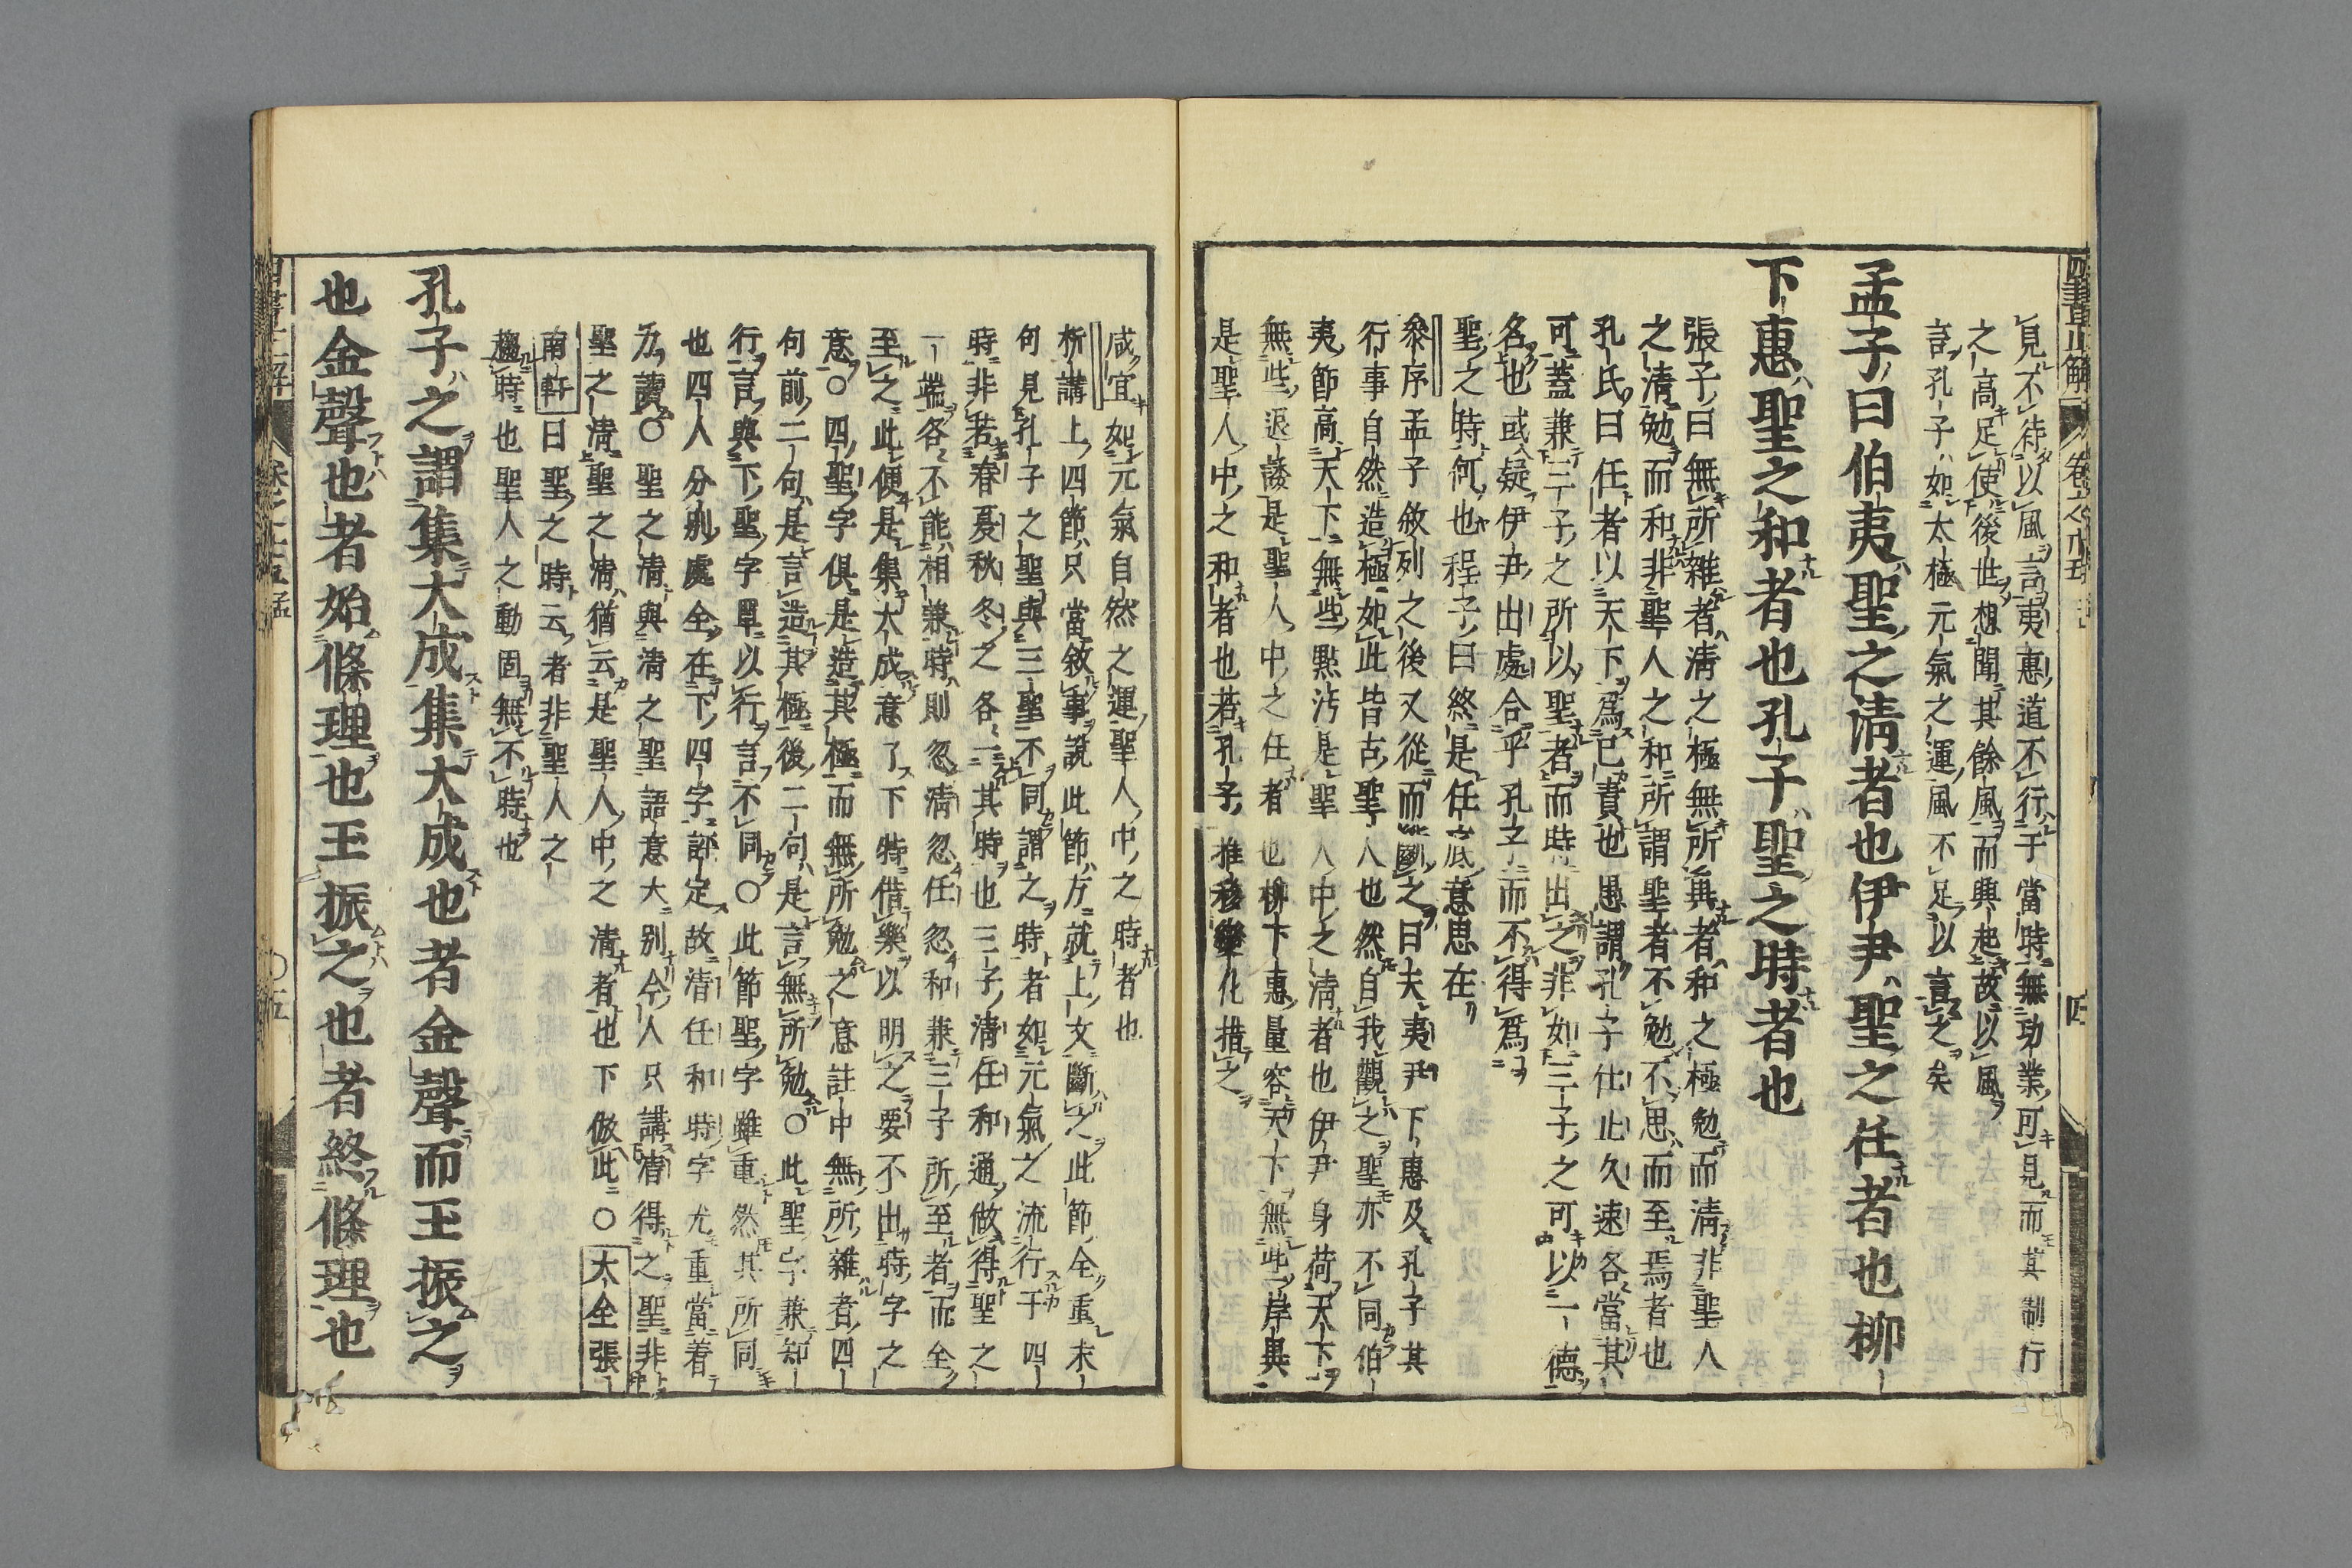 四書正解
卷之六
見不待以風言夷惠道不行于當時無功業可見而其制行
之高足使後世想聞其餘風而興起故以風
言孔子如太極元氣之運風不足以言之矣
孟子曰伯夷聖之清者也伊尹聖之任者也柳
下惠聖之和者也孔子聖之時者也
張子曰無所雜者清之極無所異者和之極勉而清非聖人
之清勉而和非聖人之和所謂聖者不勉不思而至焉者也
孔氏曰任者以天下爲己責也愚謂孔子仕止久速各當其
可蓋兼三子之所以聖者而時出之非如三子之可以一德
名也或疑伊尹出處合乎孔子而不得爲
聖之時何也程子曰終是任底意思在
參序孟子敘列之後又從而斷之曰夫夷尹下惠及孔子其
行事自然造極如此皆古聖人也然自我觀之聖亦不同伯
夷節高天下無些點汚是聖人中之清者也伊尹身荷天下
無些退諉是聖人中之任者也柳下惠量容天下無些岸異
是聖人中之和者也若孔子推移變化措之
咸宜如元氣自然之運聖人中之時者也
析講上四節只當敘事説此節方就上文斷之此節全重末
句見孔子之聖與三聖不同謂之時者如元氣之流行于四
時非若春夏秋冬之各一其時也三子清任和通做得聖之
一端各不能相兼時則忽清忽任忽和兼三子所至者而全
至之此便是集大成意了下特借樂以明之要不出時字之
意○四聖字俱是造其極而無所勉之意註中無所雜者四
句前二句是言造其極後二句是言無所勉○此聖字兼知
行言與下聖字單以行言不同○此節聖字雖重然其所同
也四人分別處全在下四字評定故清任和時字尤重當着
力讀○聖之清與清之聖語意大別今人只講清得之聖非
聖之清聖之清猶云是聖人中之清者也下倣此○大全張
南軒曰聖之時云者非聖人之
趨時也聖人之動固無不時也
孔子之謂集大成集大成也者金聲而玉振之
也金聲也者始條理也玉振之也者終條理也